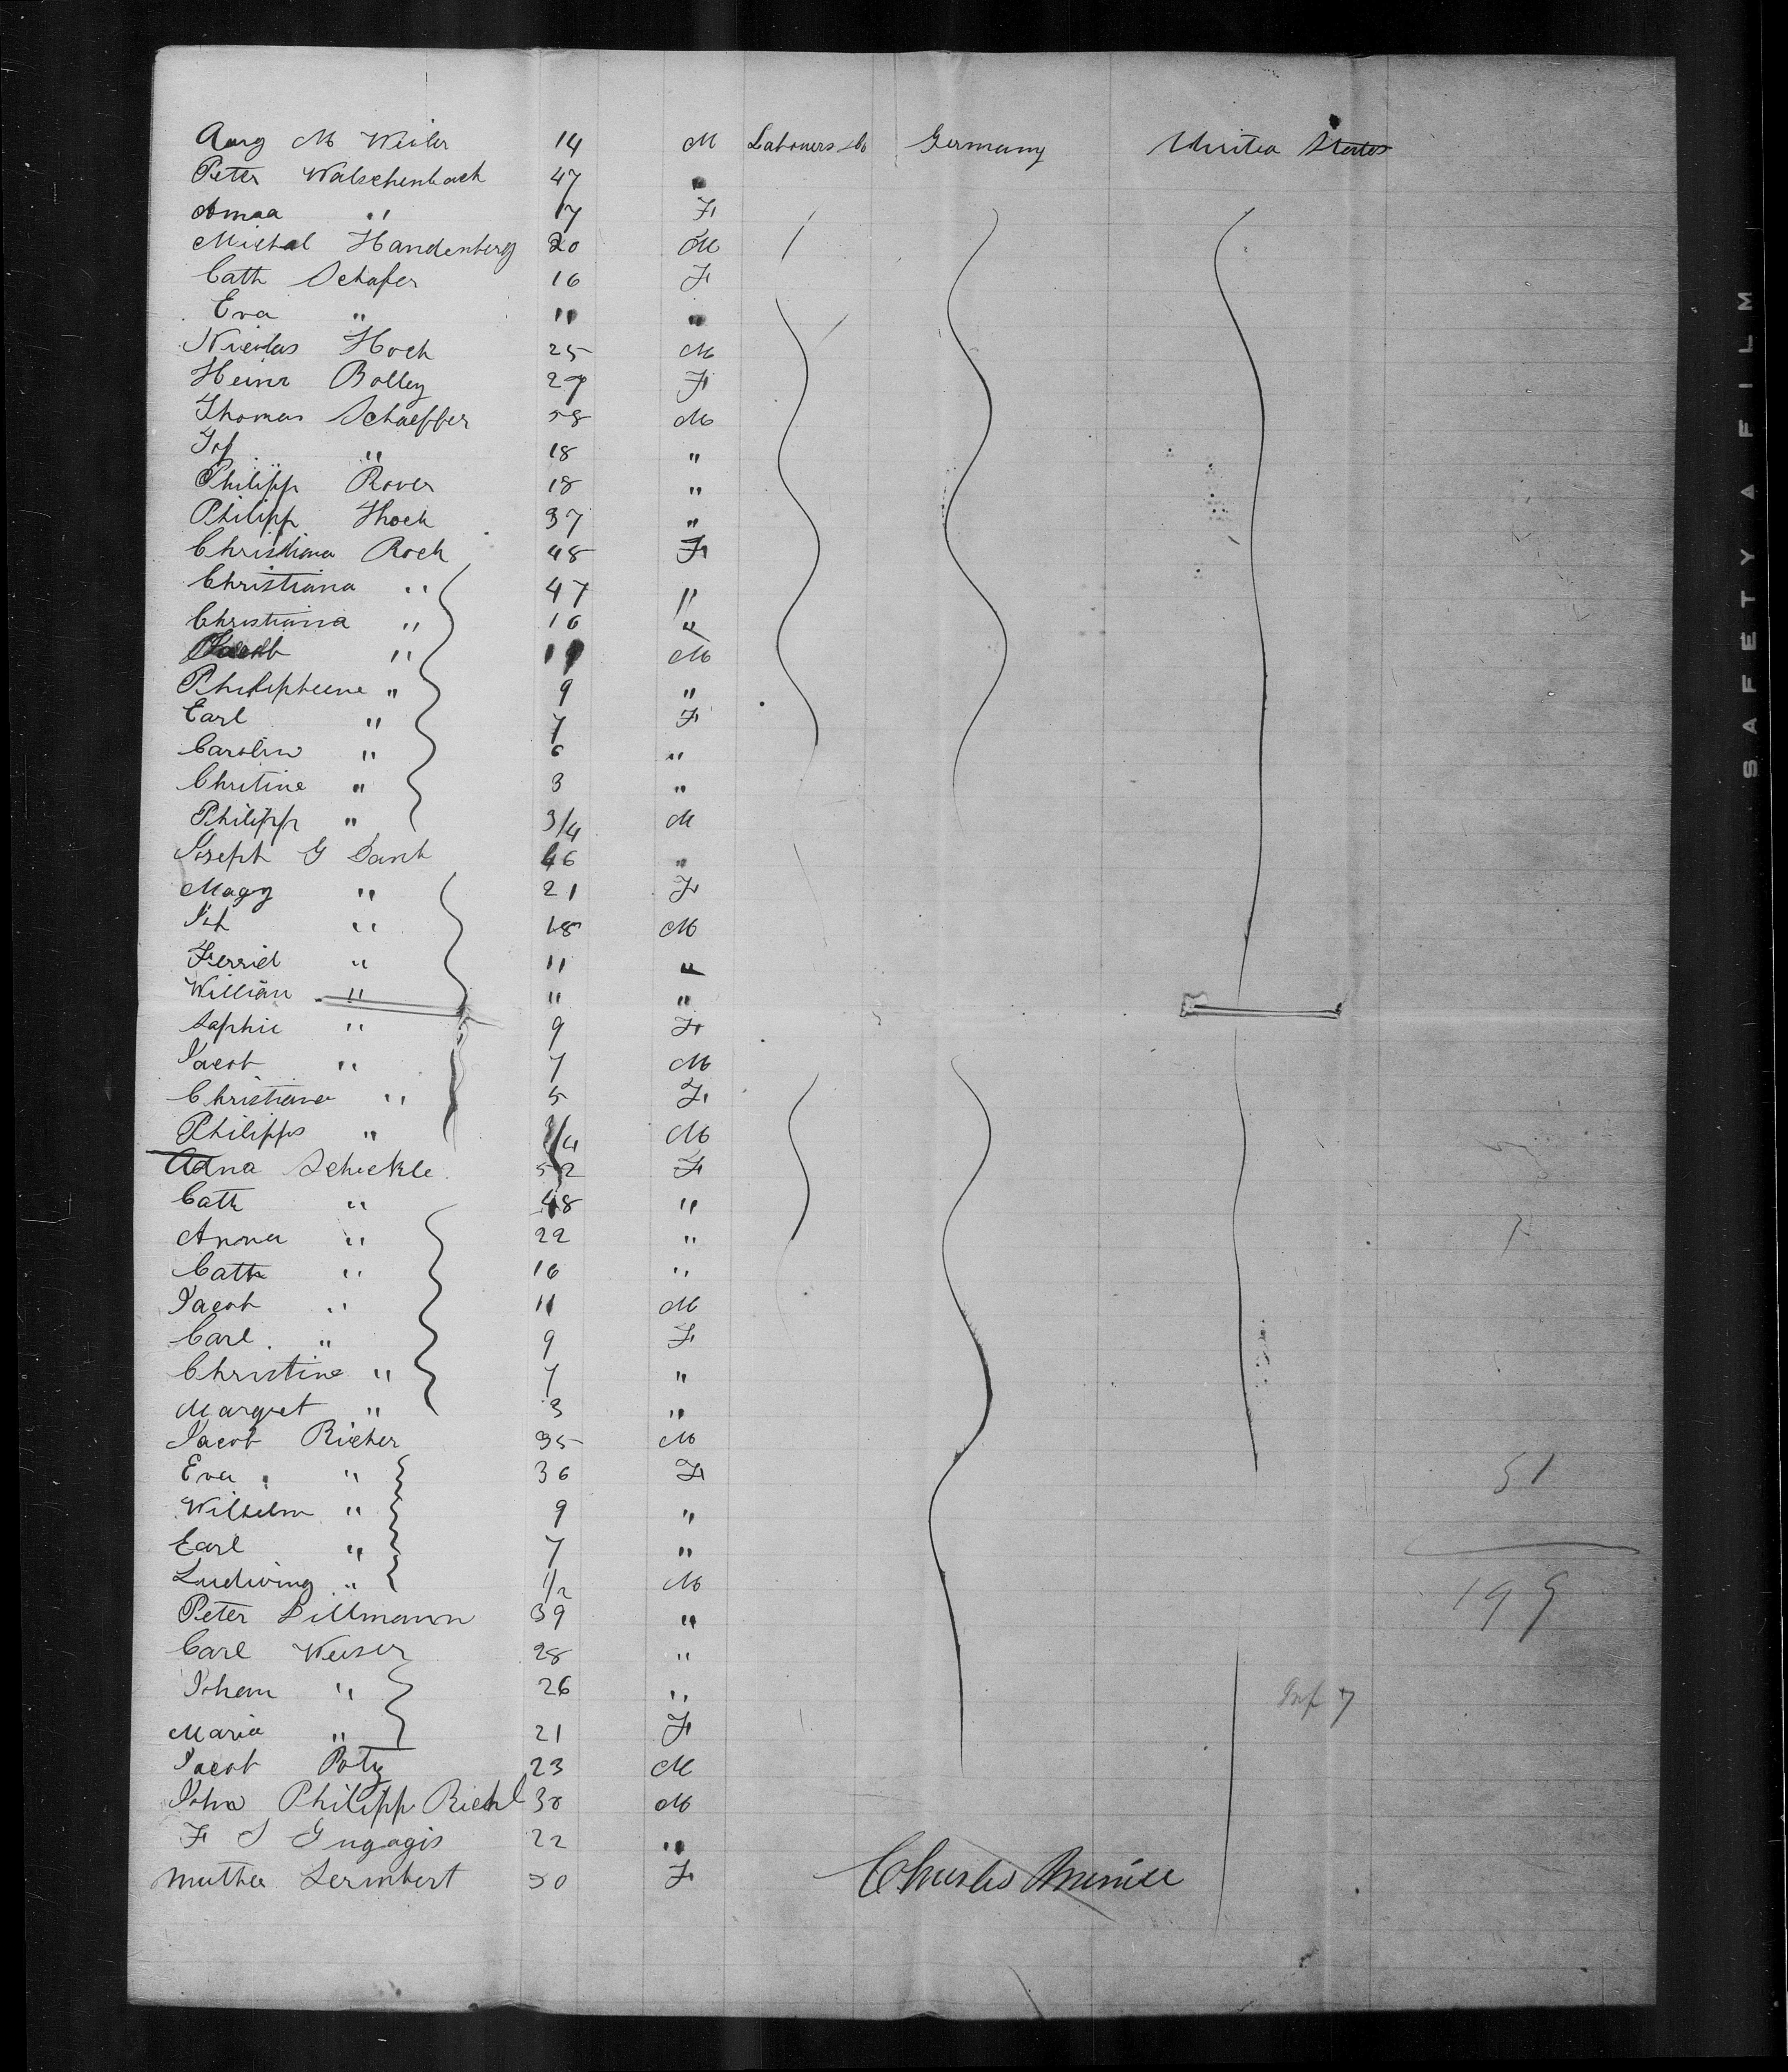 Aug M Weiler 14 M Labourers &c Germany United States
Peter Walschenbach 47 "
Amaa " 17 F
Michal Handenberg 20 M
Cath Schafer 16 F
Eva " 11 "
Nicolas Hoch 25 M
Heinr Bolley 27 F
Thomas Schaeffer 58 M
Jos " 18 "
Philipp Rover 18 "
Philipp Hoch 37 "
Christiana Roch 48 F
Christiana " 47 "
Christiana " 16 "
Jacob " M
Philipheene " 9 "
Earl " 7 F
Carolin " 6 "
Chritine " 3 "
Philipp " 3/4 M
Joseph G Sant 46 "
Magg " 21 F
" 18 M
Ferried " 11 "
William " " "
Saphie " 9 F
Jacob " 7 M
Christiana " 5 F
Philipps " 3/4 M
Adna Scheckle 52 F
Cath " 48 "
Anna " 22 "
Cath " 16 "
Jacob " 11 M
Carl " 9 F
Christine " 7 "
Margret " 3 "
Jacob Richer 35 M
Eva " 36 F 51
Wilhelm " 9 "
Earl " 7 "
Ludwing " 1/2 M 199
Peter Dillmann 39 "
Carl Weiser 28 "
Johann " 26 " Inf 7
Maria " 21 F
Jacob Potz 23 M
John Philipp Riehl 30 M
F S Gugagis 22 "
Muther Lermbert 50 F Charles
SAFETY A FILM